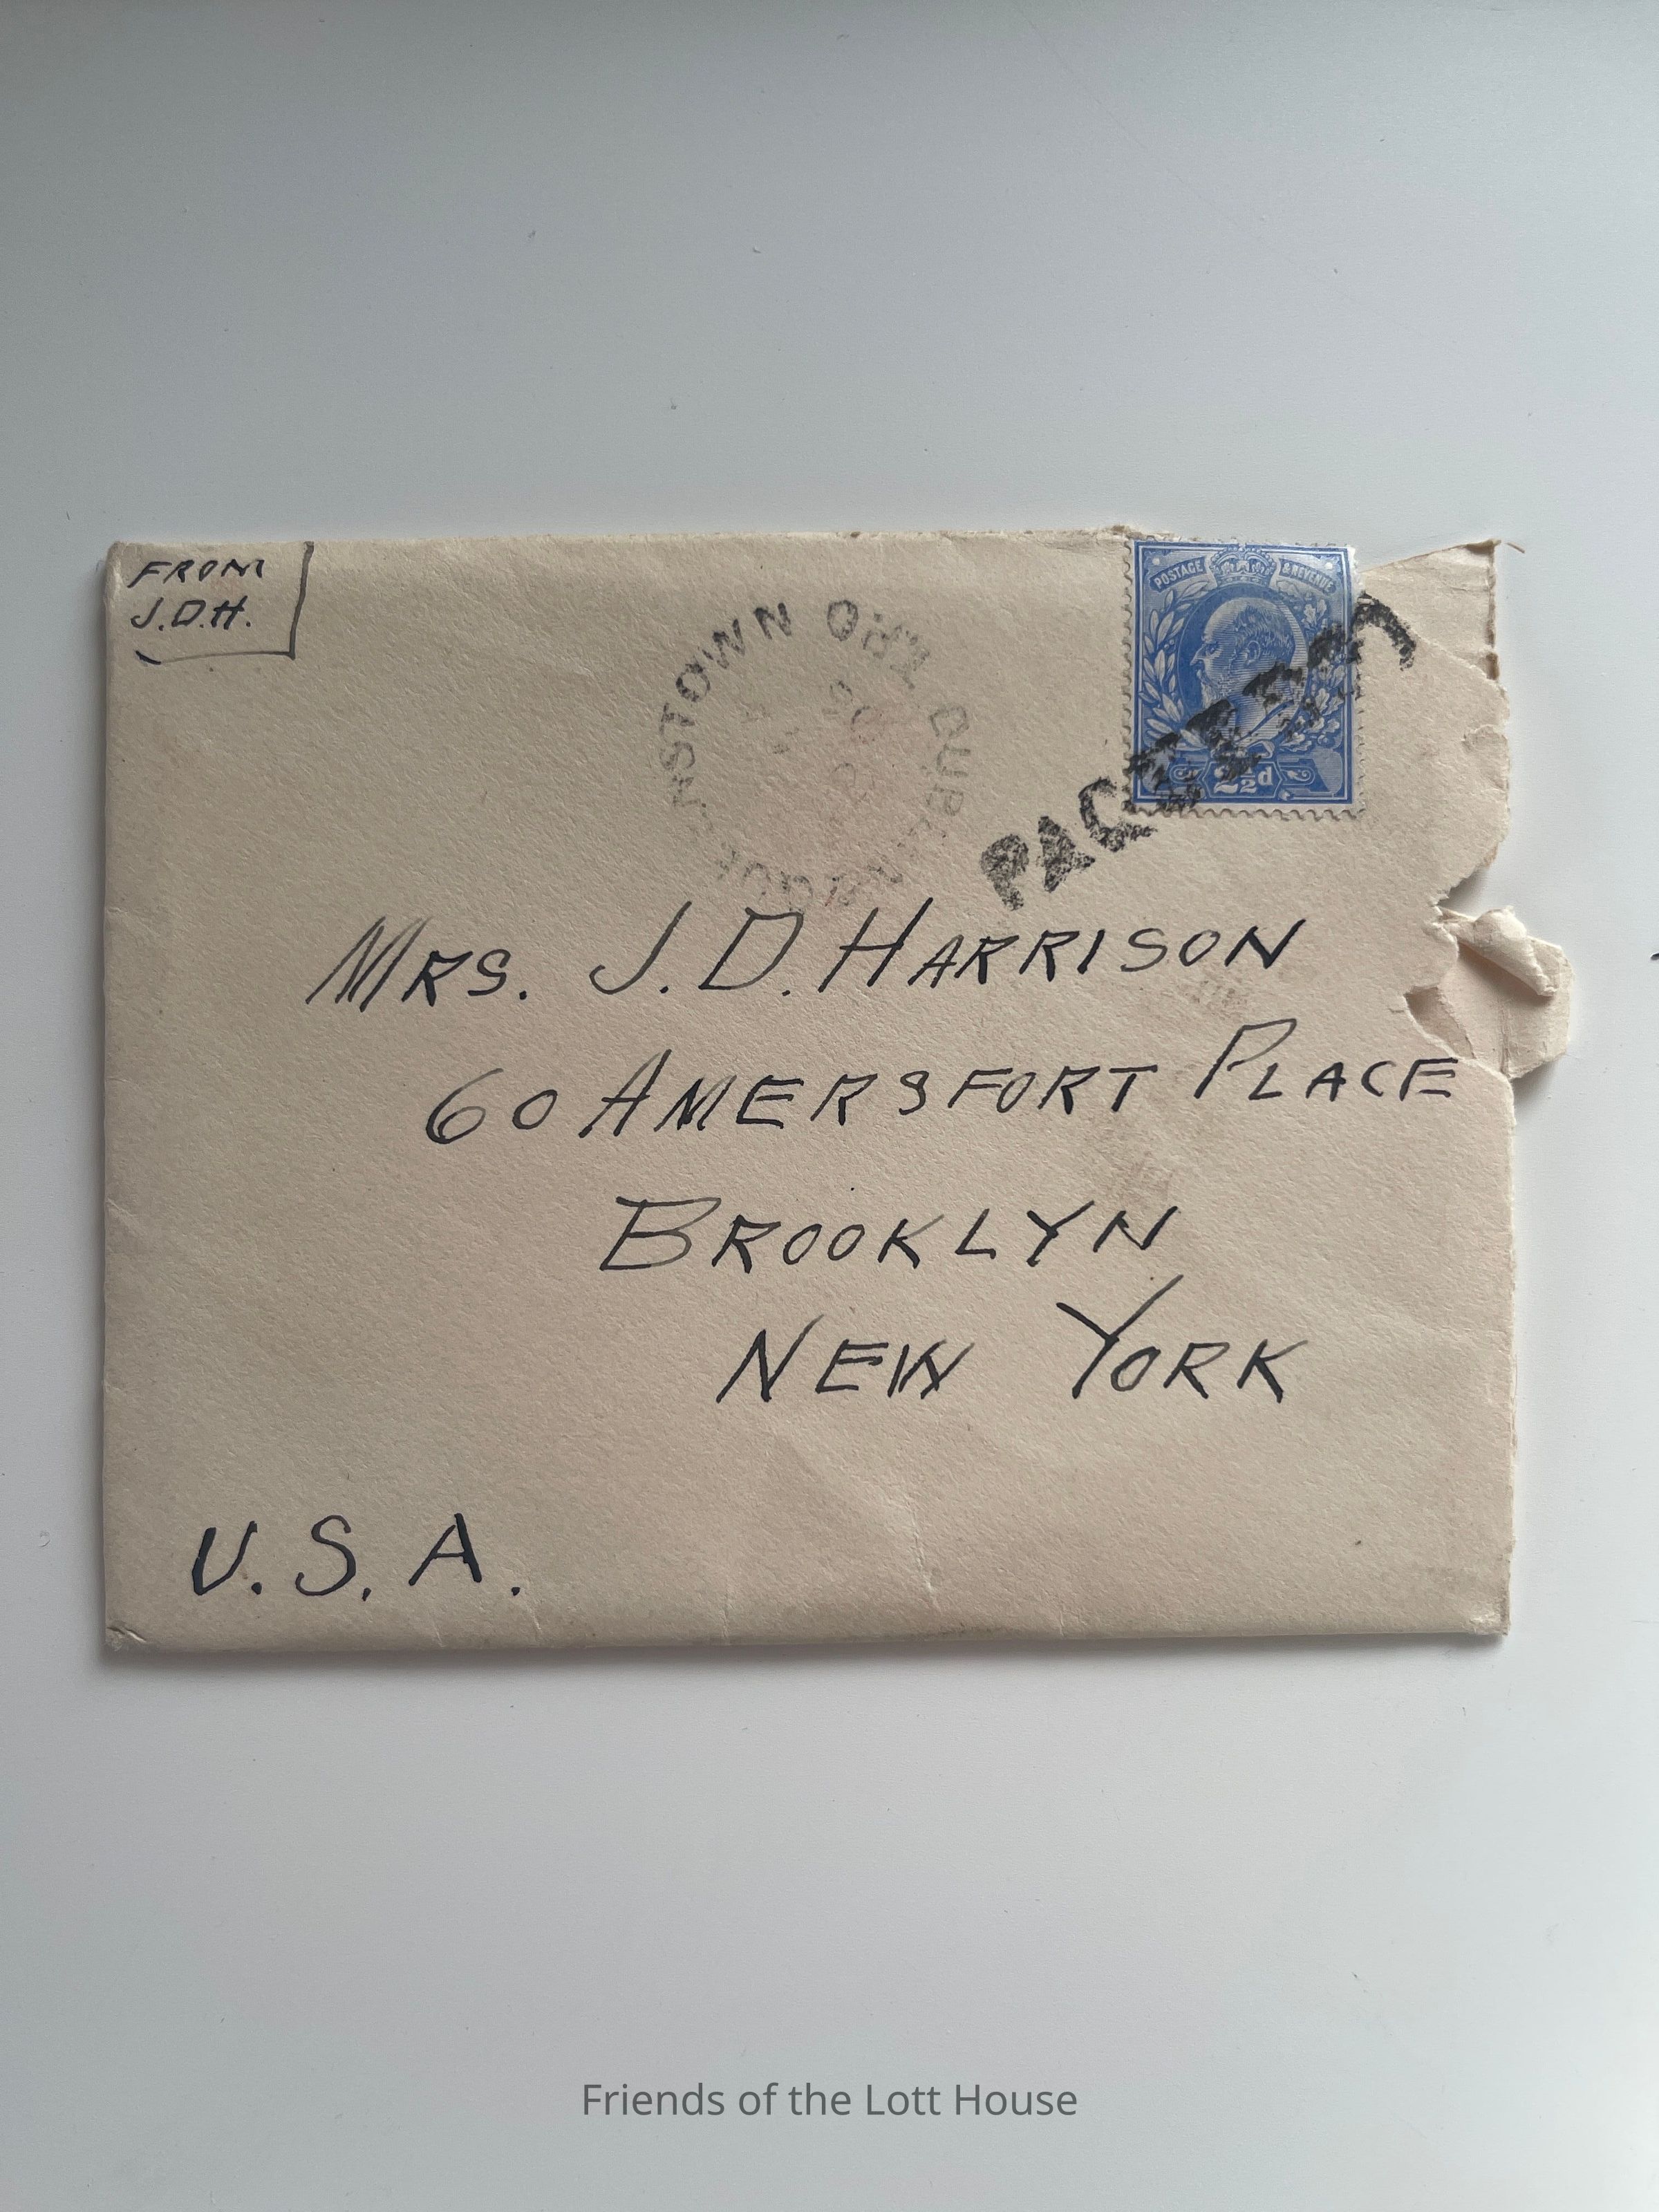 FROM
J.D.H.
POSTAGE & REVENUE
2½d
MRS. J. D. HARRISON
60 AMERSFORT PLACE
BROOKLYN
NEW YORK
U.S.A.
Friends of the Lott House